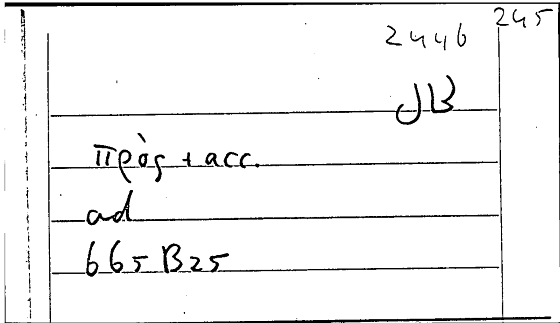 2446 245
JB
πρὸς + acc.
ad
665 B25